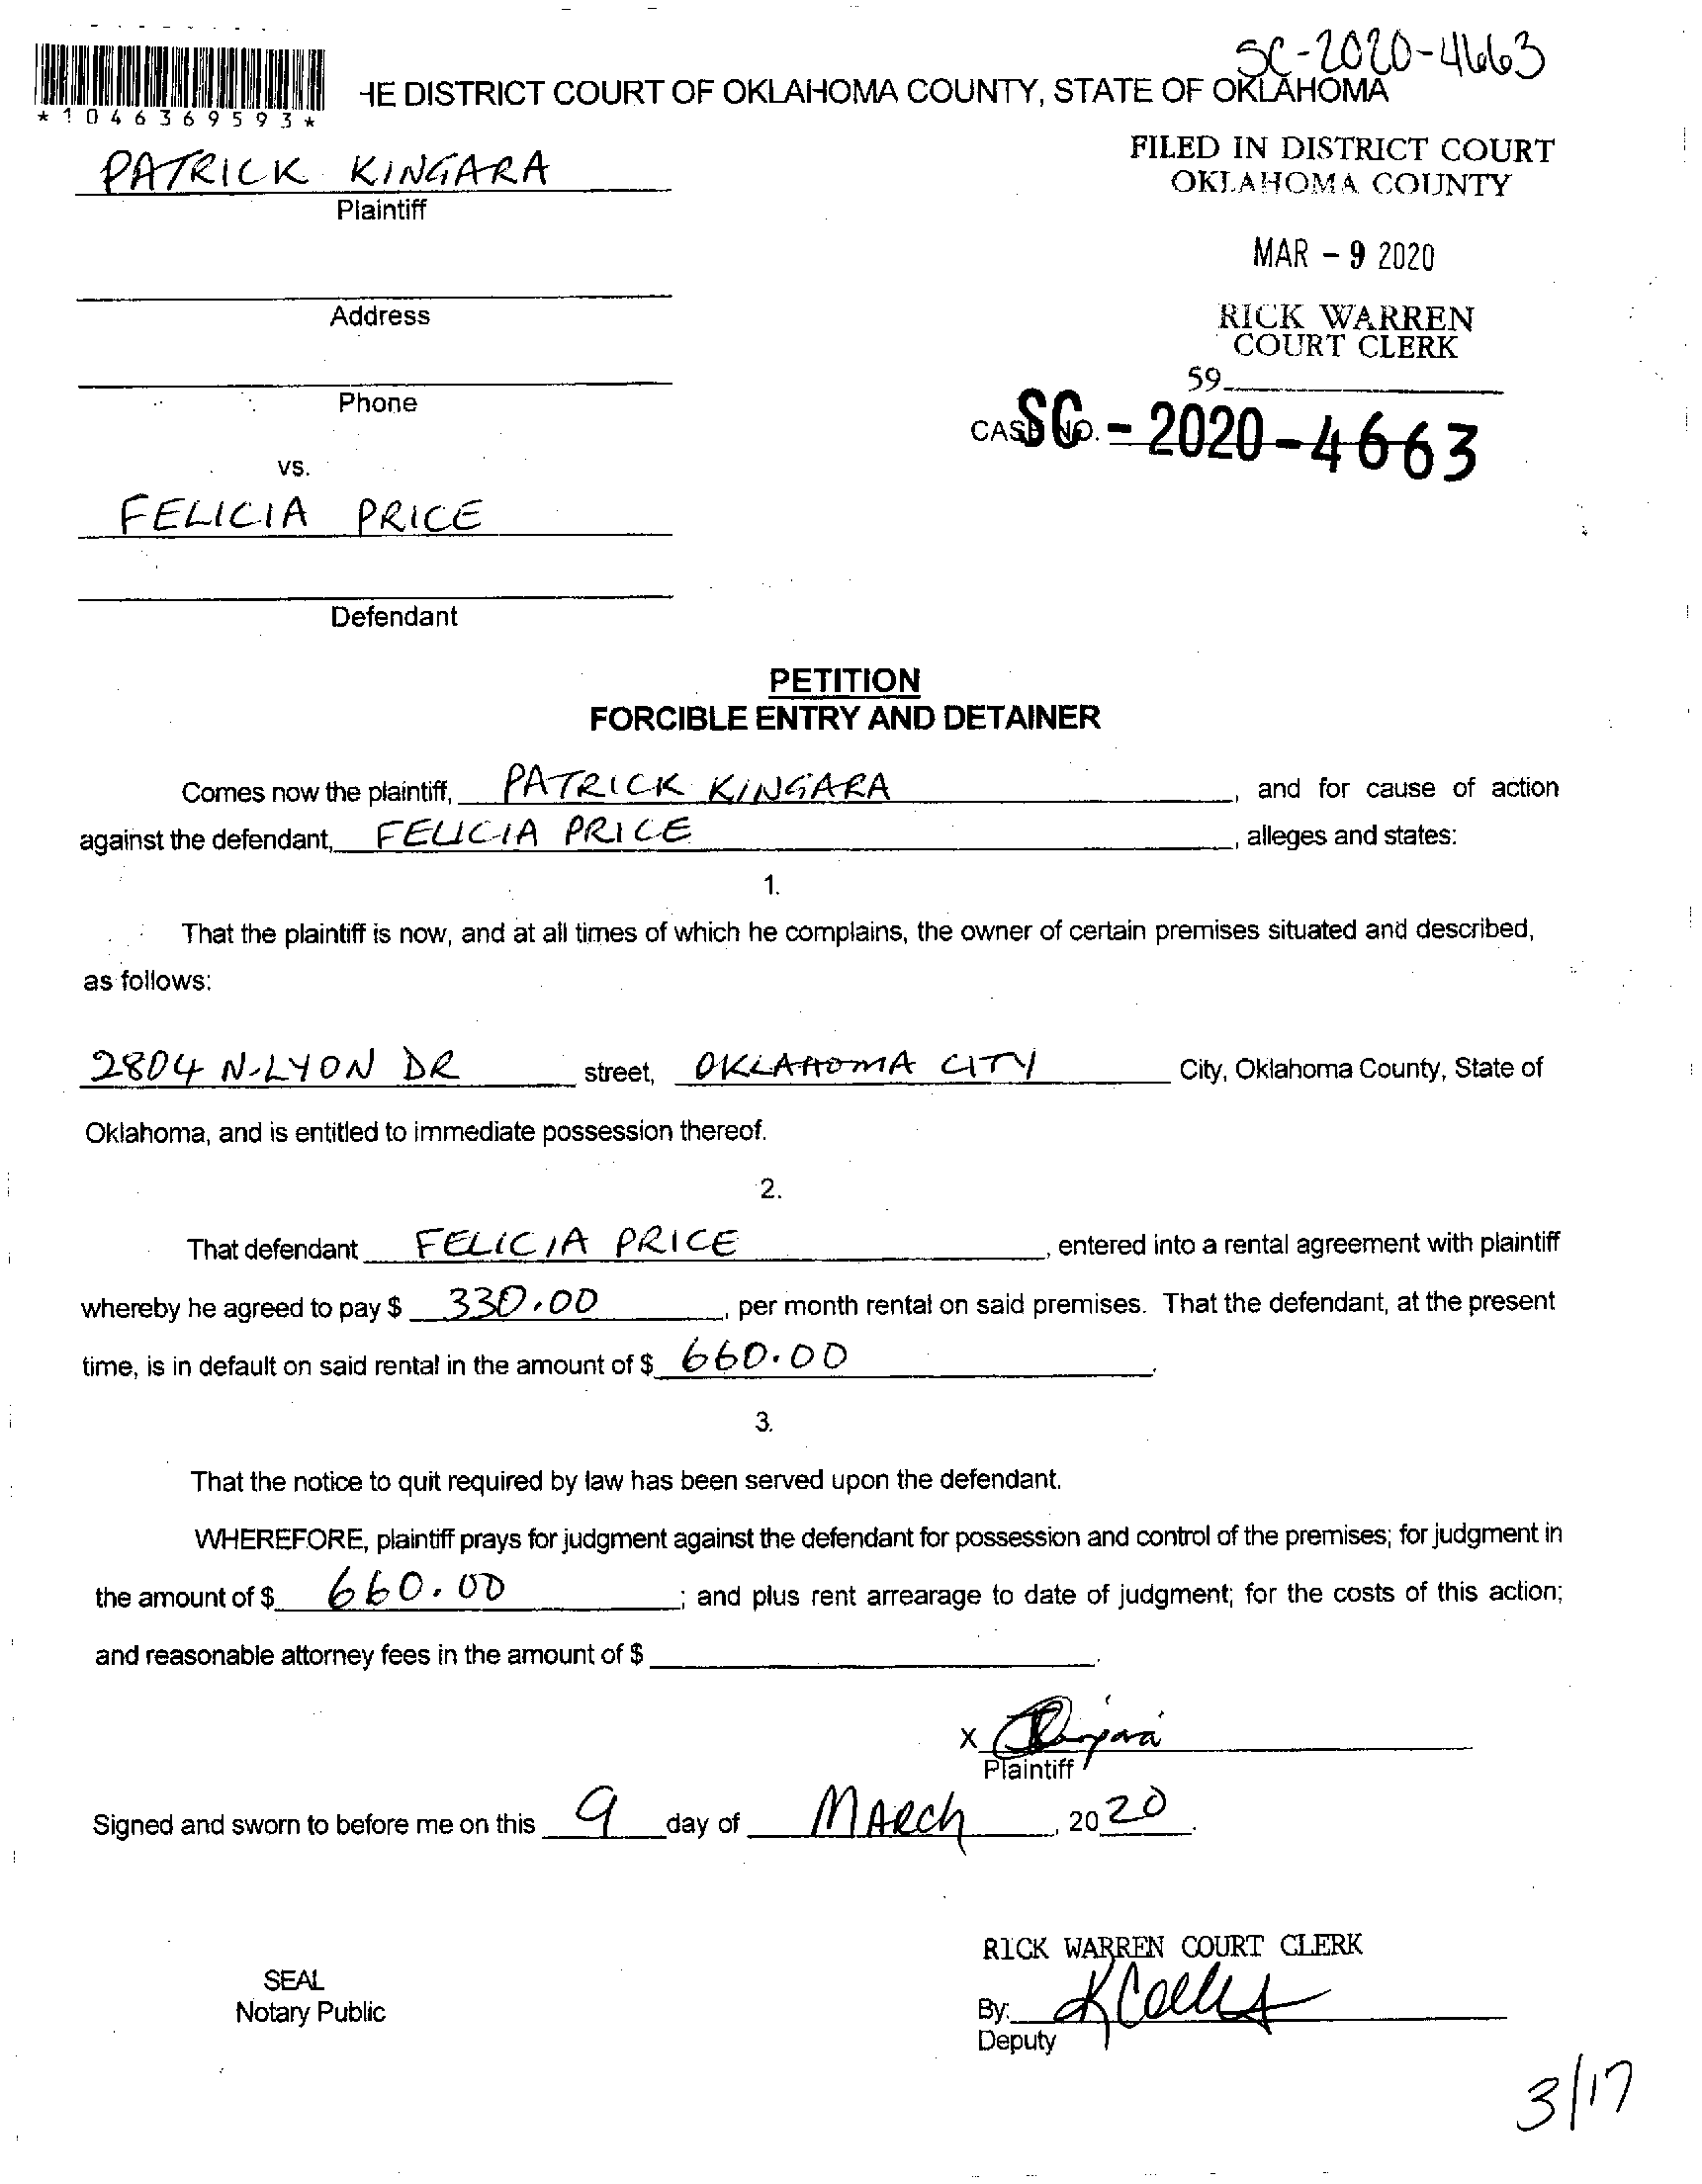 SC-2020-4663
HE DISTRICT COURT OF OKLAHOMA COUNTY, STATE OF OKLAHOMA
*1046369593*
FILED IN DISTRICT COURT
OKLAHOMA COUNTY
PATRICK KINGARA
Plaintiff
MAR - 9 2020
Address
RICK WARREN
COURT CLERK
59
Phone
CASE NO. SC - 2020-4663
vs.
FELICIA PRICE
Defendant
PETITION
FORCIBLE ENTRY AND DETAINER
Comes now the plaintiff, PATRICK KINGARA, and for cause of action
against the defendant, FELICIA PRICE, alleges and states:
1.
That the plaintiff is now, and at all times of which he complains, the owner of certain premises situated and described,
as follows:
2804 N.LYON DR street, OKLAHOMA CITY City, Oklahoma County, State of
Oklahoma, and is entitled to immediate possession thereof.
2.
That defendant FELICIA PRICE, entered into a rental agreement with plaintiff
whereby he agreed to pay $ 330.00, per month rental on said premises. That the defendant, at the present
time, is in default on said rental in the amount of $ 660.00.
3.
That the notice to quit required by law has been served upon the defendant.
WHEREFORE, plaintiff prays for judgment against the defendant for possession and control of the premises; for judgment in
the amount of $ 660.00; and plus rent arrearage to date of judgment; for the costs of this action;
and reasonable attorney fees in the amount of $ .
X
Plaintiff
Signed and sworn to before me on this 9 day of MARch, 2020.
RICK WARREN COURT CLERK
SEAL
Notary Public
By:
Deputy
3/17